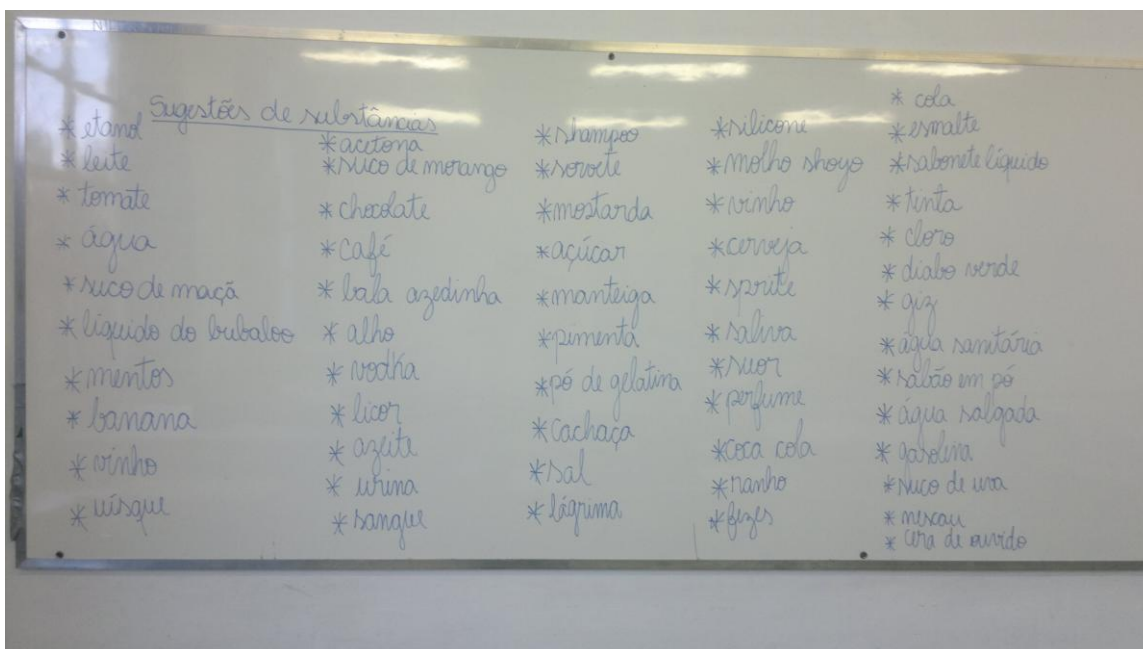 Sugestões de substâncias
* etanol
* leite
* tomate
* água
* suco de maçã
* líquido do bubaloo
* mentos
* banana
* vinho
* uísque
* acetona
* suco de morango
* chocolate
* café
* bala azedinha
* alho
* vodka
* licor
* azeite
* urina
* sangue
* shampoo
* sorvete
* mostarda
* açúcar
* manteiga
* pimenta
* pó de gelatina
* cachaça
* sal
* lágrima
* silicone
* molho shoyo
* vinho
* cerveja
* sprite
* saliva
* suor
* perfume
* coca cola
* ranho
* fezes
* cola
* esmalte
* sabonete líquido
* tinta
* cloro
* diabo verde
* giz
* água sanitária
* sabão em pó
* água salgada
* gasolina
* suco de uva
* nescau
* cera de ouvido